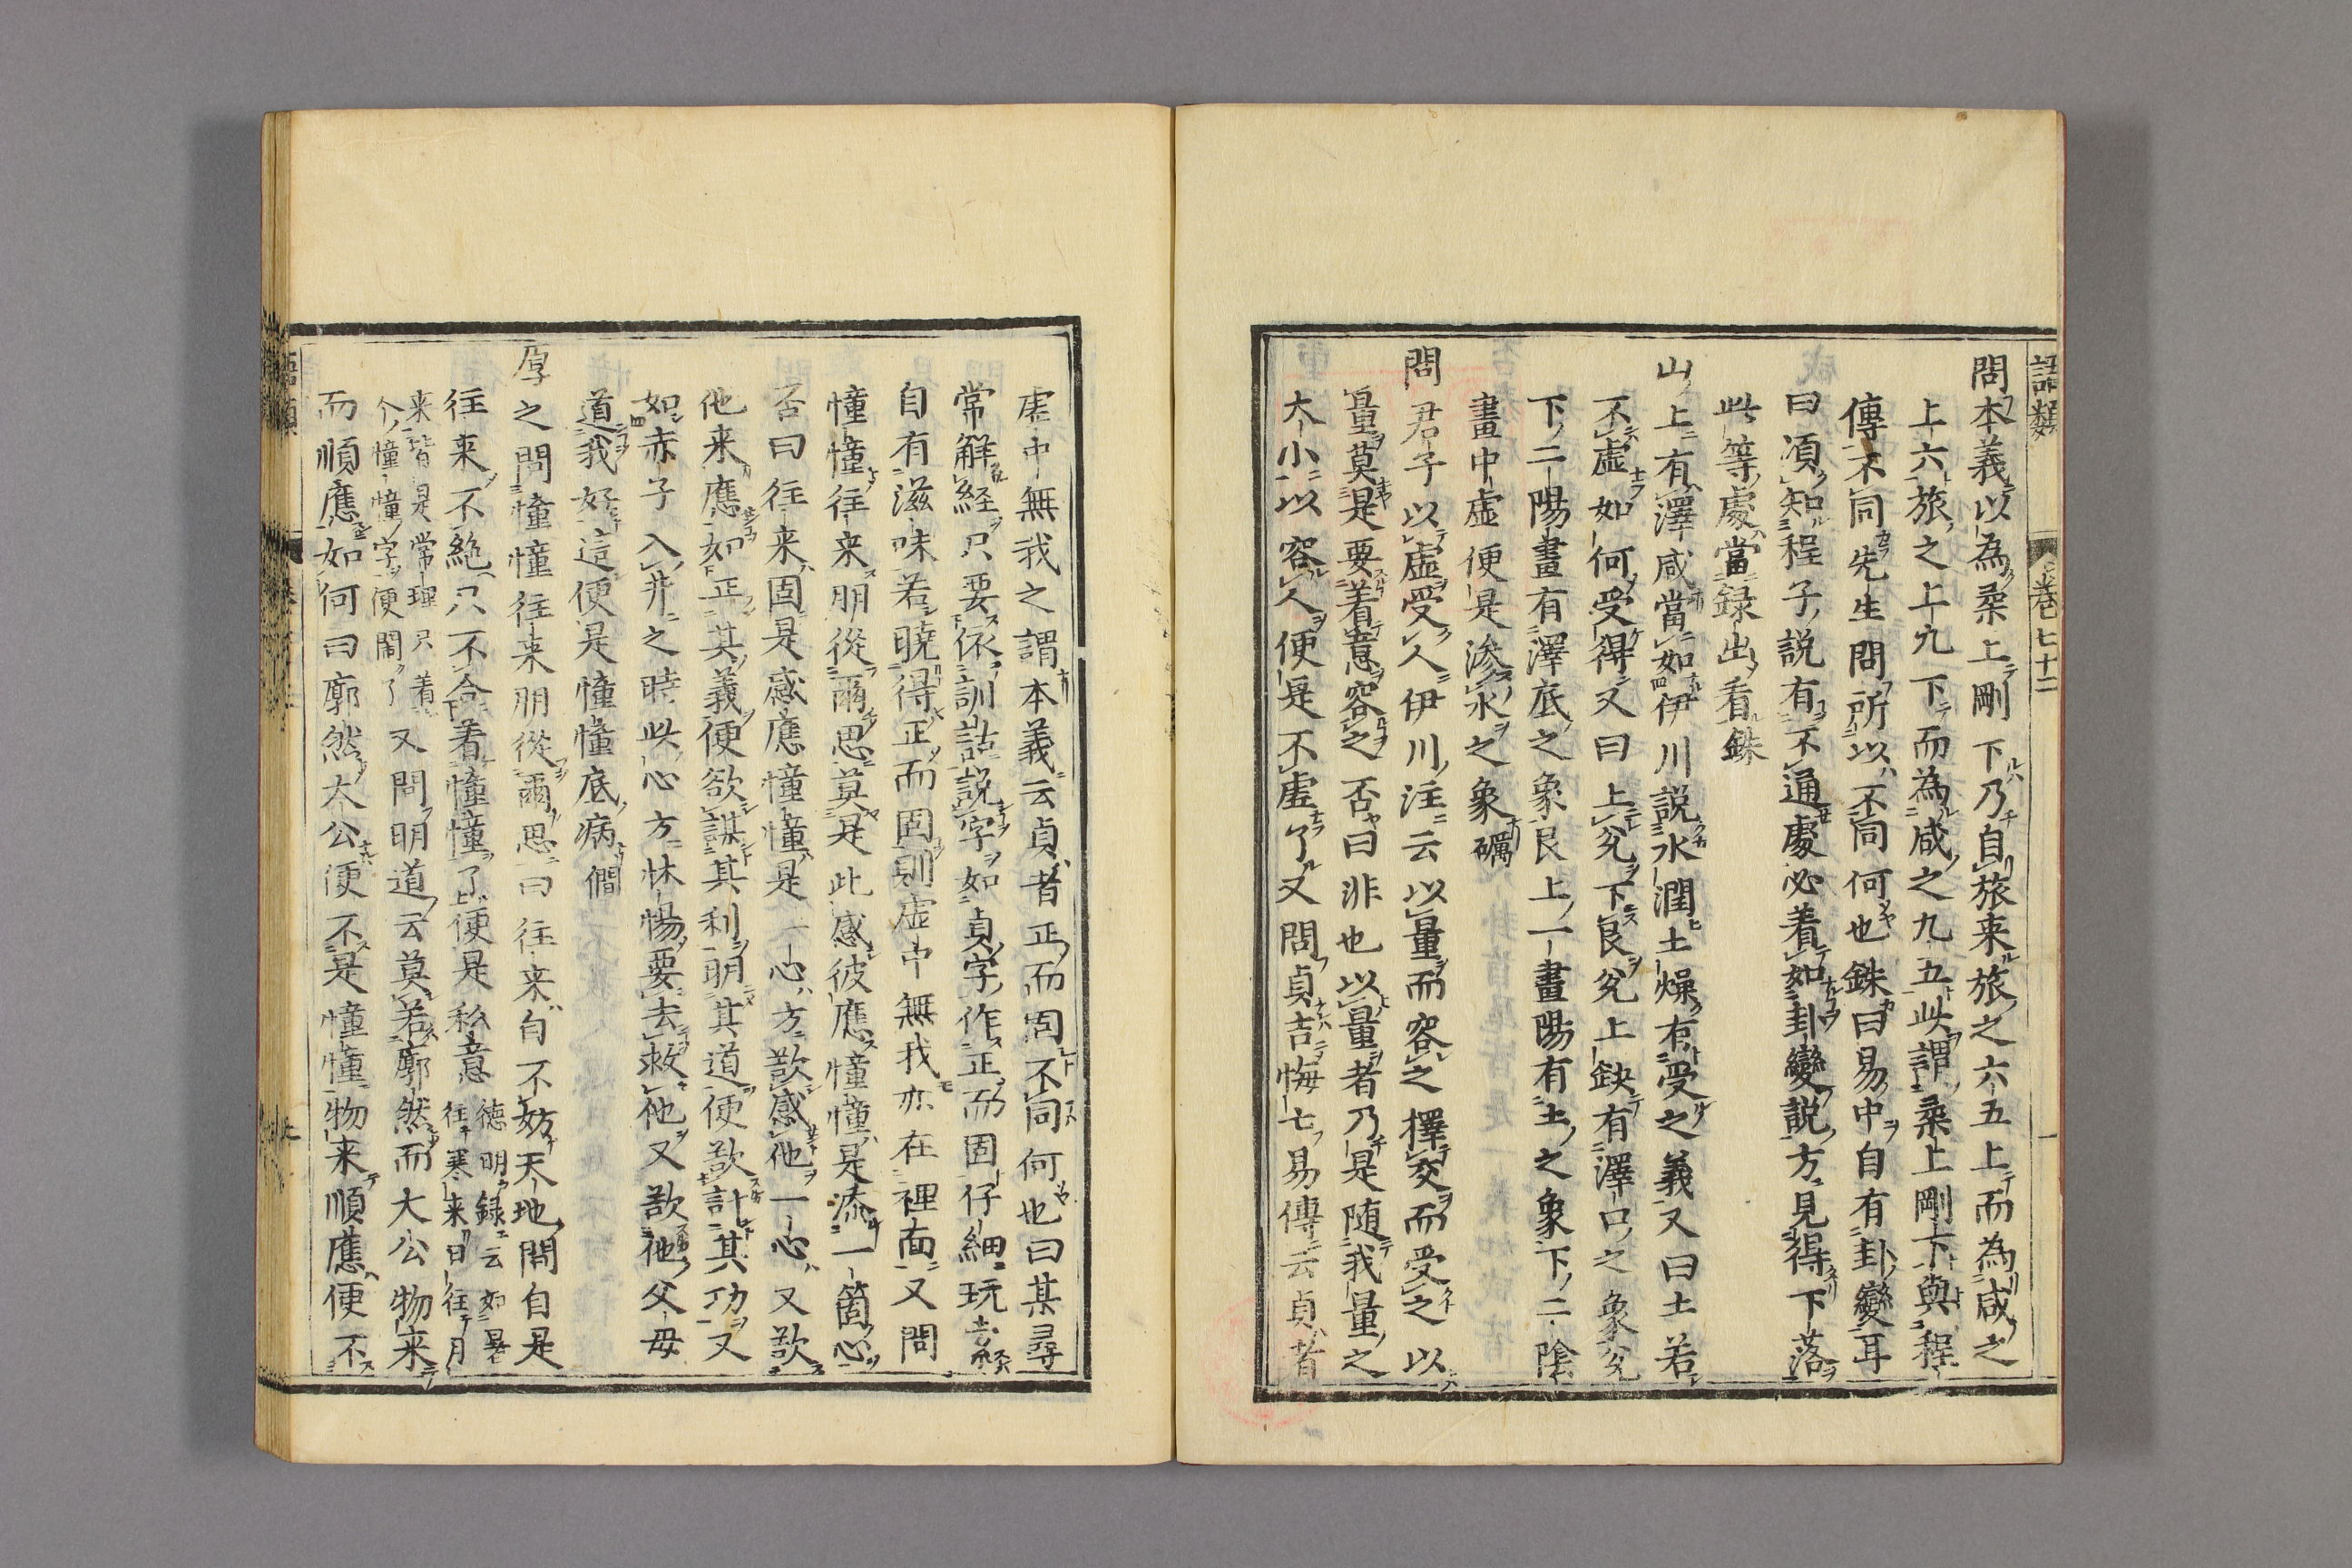 語類
卷七十二
一
問本義以為柔上剛下乃自旅来旅之六五上而為咸之
上六旅之上九下而為咸之九五此謂柔上剛下與程
傳不同先生問所以不同何也銖曰易中自有卦變耳
曰須知程子説有不通處必着如卦變説方見得下落
此等處當録出看銖
山上有澤咸當如伊川説水潤土燥有受之義又曰土若
不虛如何受得又曰上兊下艮兊上缺有澤口之象兊
下二陽畫有澤底之象艮上一畫陽有土之象下二陰
畫中虛便是滲水之象礪
問君子以虛受人伊川注云以量而容之擇交而受之以
量莫是要着意容之否曰非也以量者乃是隨我量之
大小以容人便是不虛了又問貞吉悔亡易傳云貞者
虛中無我之謂本義云貞者正而固不同何也曰某尋
常解経只要依訓詁説字如貞字作正而固仔細玩索
自有滋味若曉得正而固則虛中無我亦在裡面又問
憧憧往来朋從爾思莫是此感彼應憧憧是添一箇心
否曰往来固是感應憧憧是一心方欲感他一心又欲
他来應如正其義便欲謀其利明其道便欲計其功又
如赤子入井之時此心方怵惕要去救他又欲他父母
道我好這便是憧憧底病僩
厚之問憧憧往来朋從爾思曰往来自不妨天地間自是
往来不絶只不合着憧憧了便是私意
德明録云如暑
往寒来日往月
来皆是常理只着
个憧憧字便閙了
又問明道云莫若廓然而大公物来
而順應如何曰廓然大公便不是憧憧物来順應便不
語類